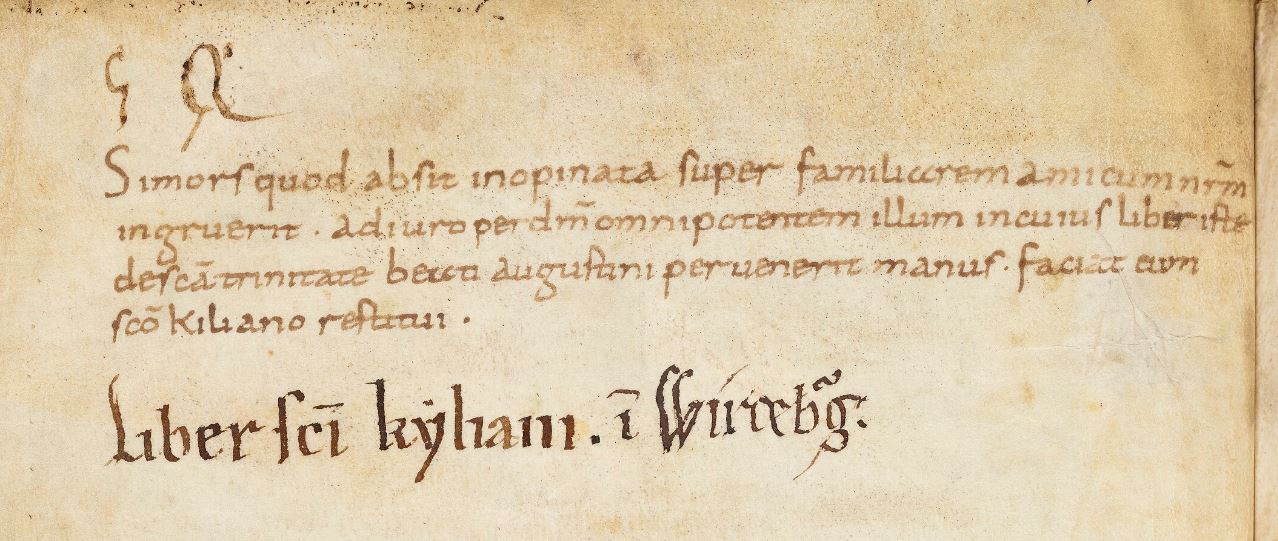 ς Q
Si mors quod absit inopinata super familiarem amicum nrm̄
ingruerit · adiuro per dm̄ omnipotentem illum in cuius liber iste
de scā trinitate beati augustini peruenerit manus · faciat eum
scō kiliano restitui ·
Liber scī kẏliani . ī Wirceb᷑g.